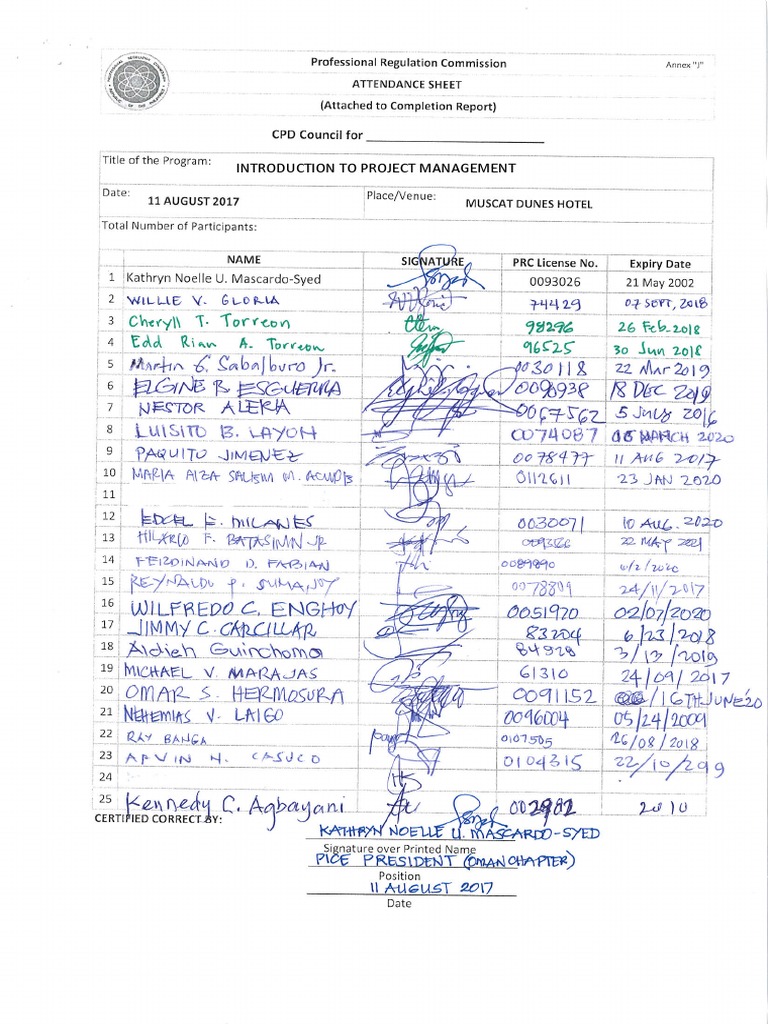 Professional Regulation Commission
Annex "J"
ATTENDANCE SHEET
(Attached to Completion Report)
CPD Council for
Title of the Program: INTRODUCTION TO PROJECT MANAGEMENT
Date: 11 AUGUST 2017 Place/Venue: MUSCAT DUNES HOTEL
Total Number of Participants:
NAME SIGNATURE PRC License No. Expiry Date
1 Kathryn Noelle U. Mascardo-Syed 0093026 21 May 2002
2 WILLIE V. GLORIA 74429 07 SEPT, 2018
3 Cheryll T. Torreon 98296 26 Feb 2018
4 Edd Rian A. Torreon 96525 30 Jun 2018
5 Martin G. Sabalburo Jr. 0030118 22 Mar 2019
6 ELGINE B ESGUERRA 0090938 18 DEC 2019
7 NESTOR ALERIA 0067562 5 July 2016
8 LUISITO B. LAYON 0074087 MARCH 2020
9 PAQUITO JIMENEZ 0078477 11 AUG 2017
10 MARIA AIZA M. 0112611 23 JAN 2020
11
12 EDGEL E. MILANES 0030071 10 AUG. 2020
13 HILARIO F. JR 22 MAY 2021
14 FERDINAND D. FABIAN 0089890 2020
15 REYNALDO P. SUMANOY 0078809 24/11/2017
16 WILFREDO C. ENGHOY 0051920 02/07/2020
17 JIMMY C. CARCILLAR 83204 6/23/2018
18 Aldieh Guinchoma 84928 3/13/2019
19 MICHAEL V. MARAJAS 61310 24/09/2017
20 OMAR S. HERMOSURA 0091152 /16TH JUNE'20
21 NEHEMIAS V. LAIGO 0096004 05/24/2009
22 RAY BANGA 0107505 26/08/2018
23 ARVIN N. CASUCO 0104315 22/10/
24
25 Kennedy C. Agbayani 002982 2010
CERTIFIED CORRECT BY:
KATHRYN NOELLE U. MASCARDO-SYED
Signature over Printed Name
VICE PRESIDENT (OMAN CHAPTER)
Position
11 AUGUST 2017
Date